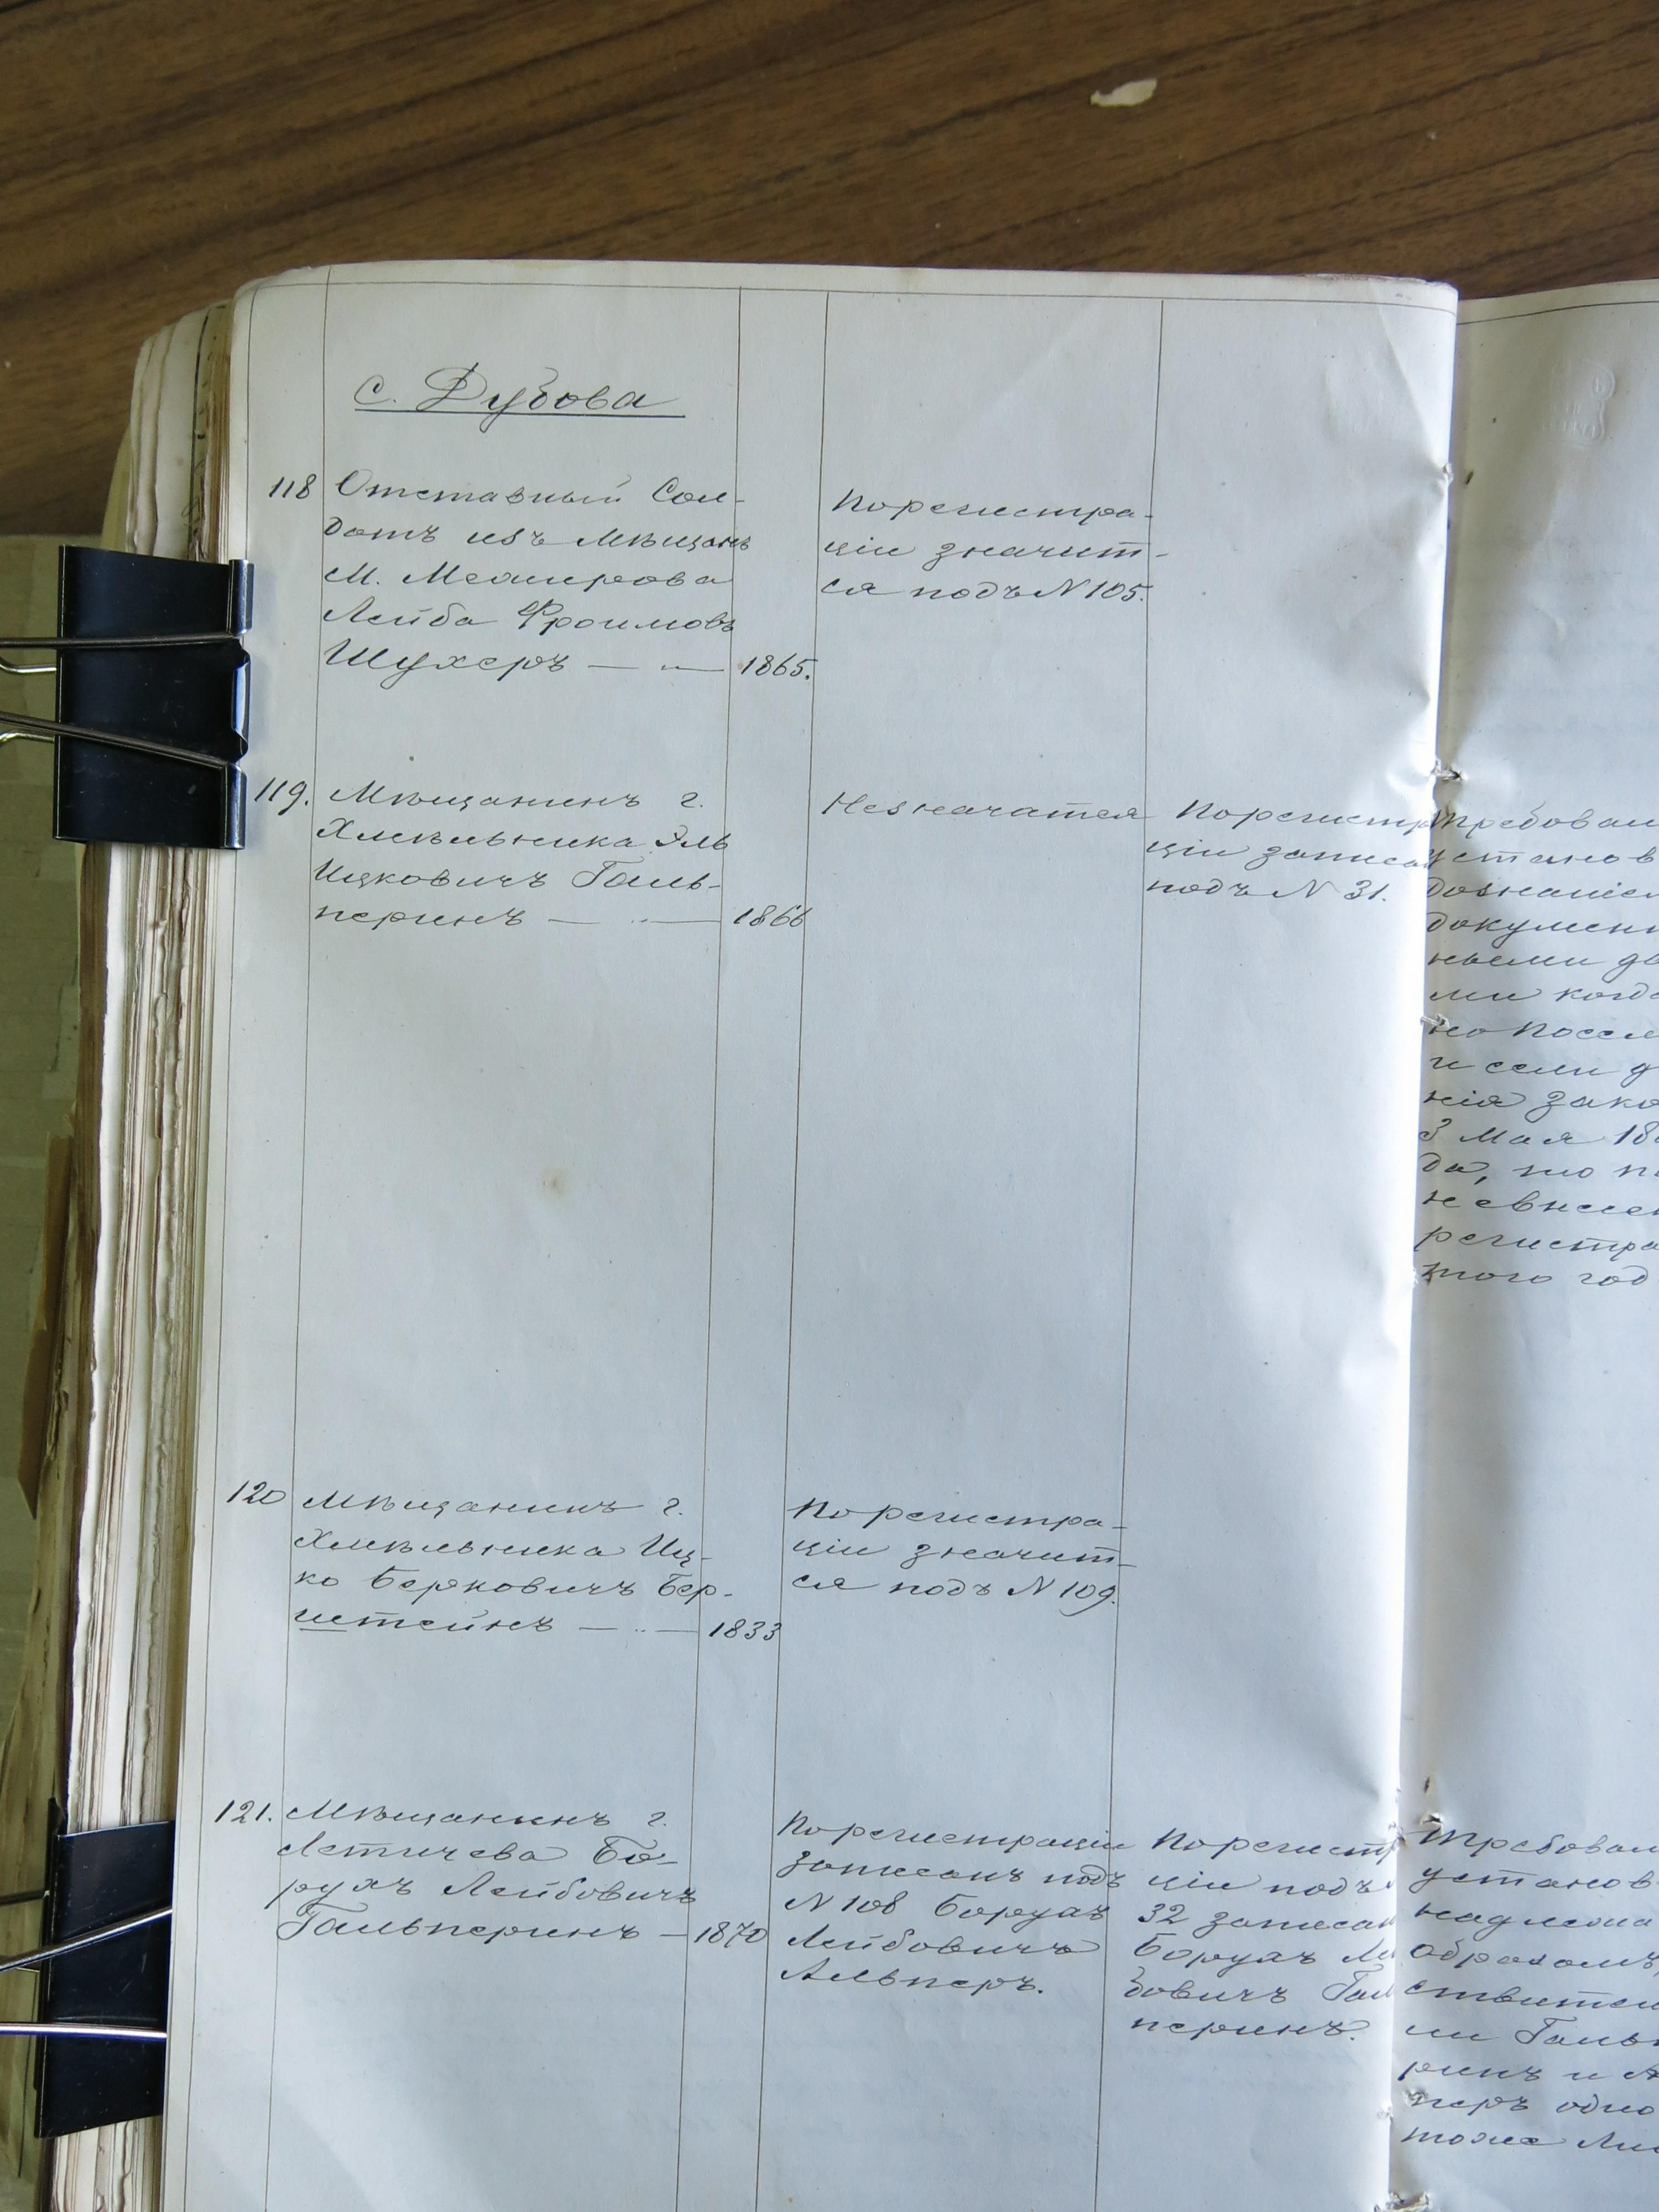 с. Дубова
118 Отставный Сол-
датъ изъ Мѣщанъ
М. Меджирова
Лейба Фроимовъ
Шухеръ — " — 1865.
По регистра-
ціи значит-
ся подъ N 105.
119. Мѣщанинъ г.
Хмѣльника Эль
Ицковичъ Галь-
перинъ — " — 1866
Не значится
По регистр
ціи записа
подъ N 31.
Требован
установ
дознаніе
докумен
ными
ми когд
но посел
и если
нія зако
3 Мая 18
да, то
не внесе
регистра
того год
120 Мѣщанинъ г.
Хмѣльника Иц-
ко Берковичъ Бер-
штейнъ — " — 1833
По регистра-
ціи значит-
ся подъ N 109.
121. Мѣщанинъ г.
Летичева Бо-
рухъ Лейбовичъ
Гальперинъ — 1870
По регистраціи
записанъ подъ
N 108 Борухъ
Лейбовичъ
Альперъ.
По регистр
ціи подъ
32 записан
Борухъ Ле
бовичъ Гал
перинъ.
Требован
установ
образомъ,
ствител
ли Гальп
ринъ и А
перъ одно
тоже Ли